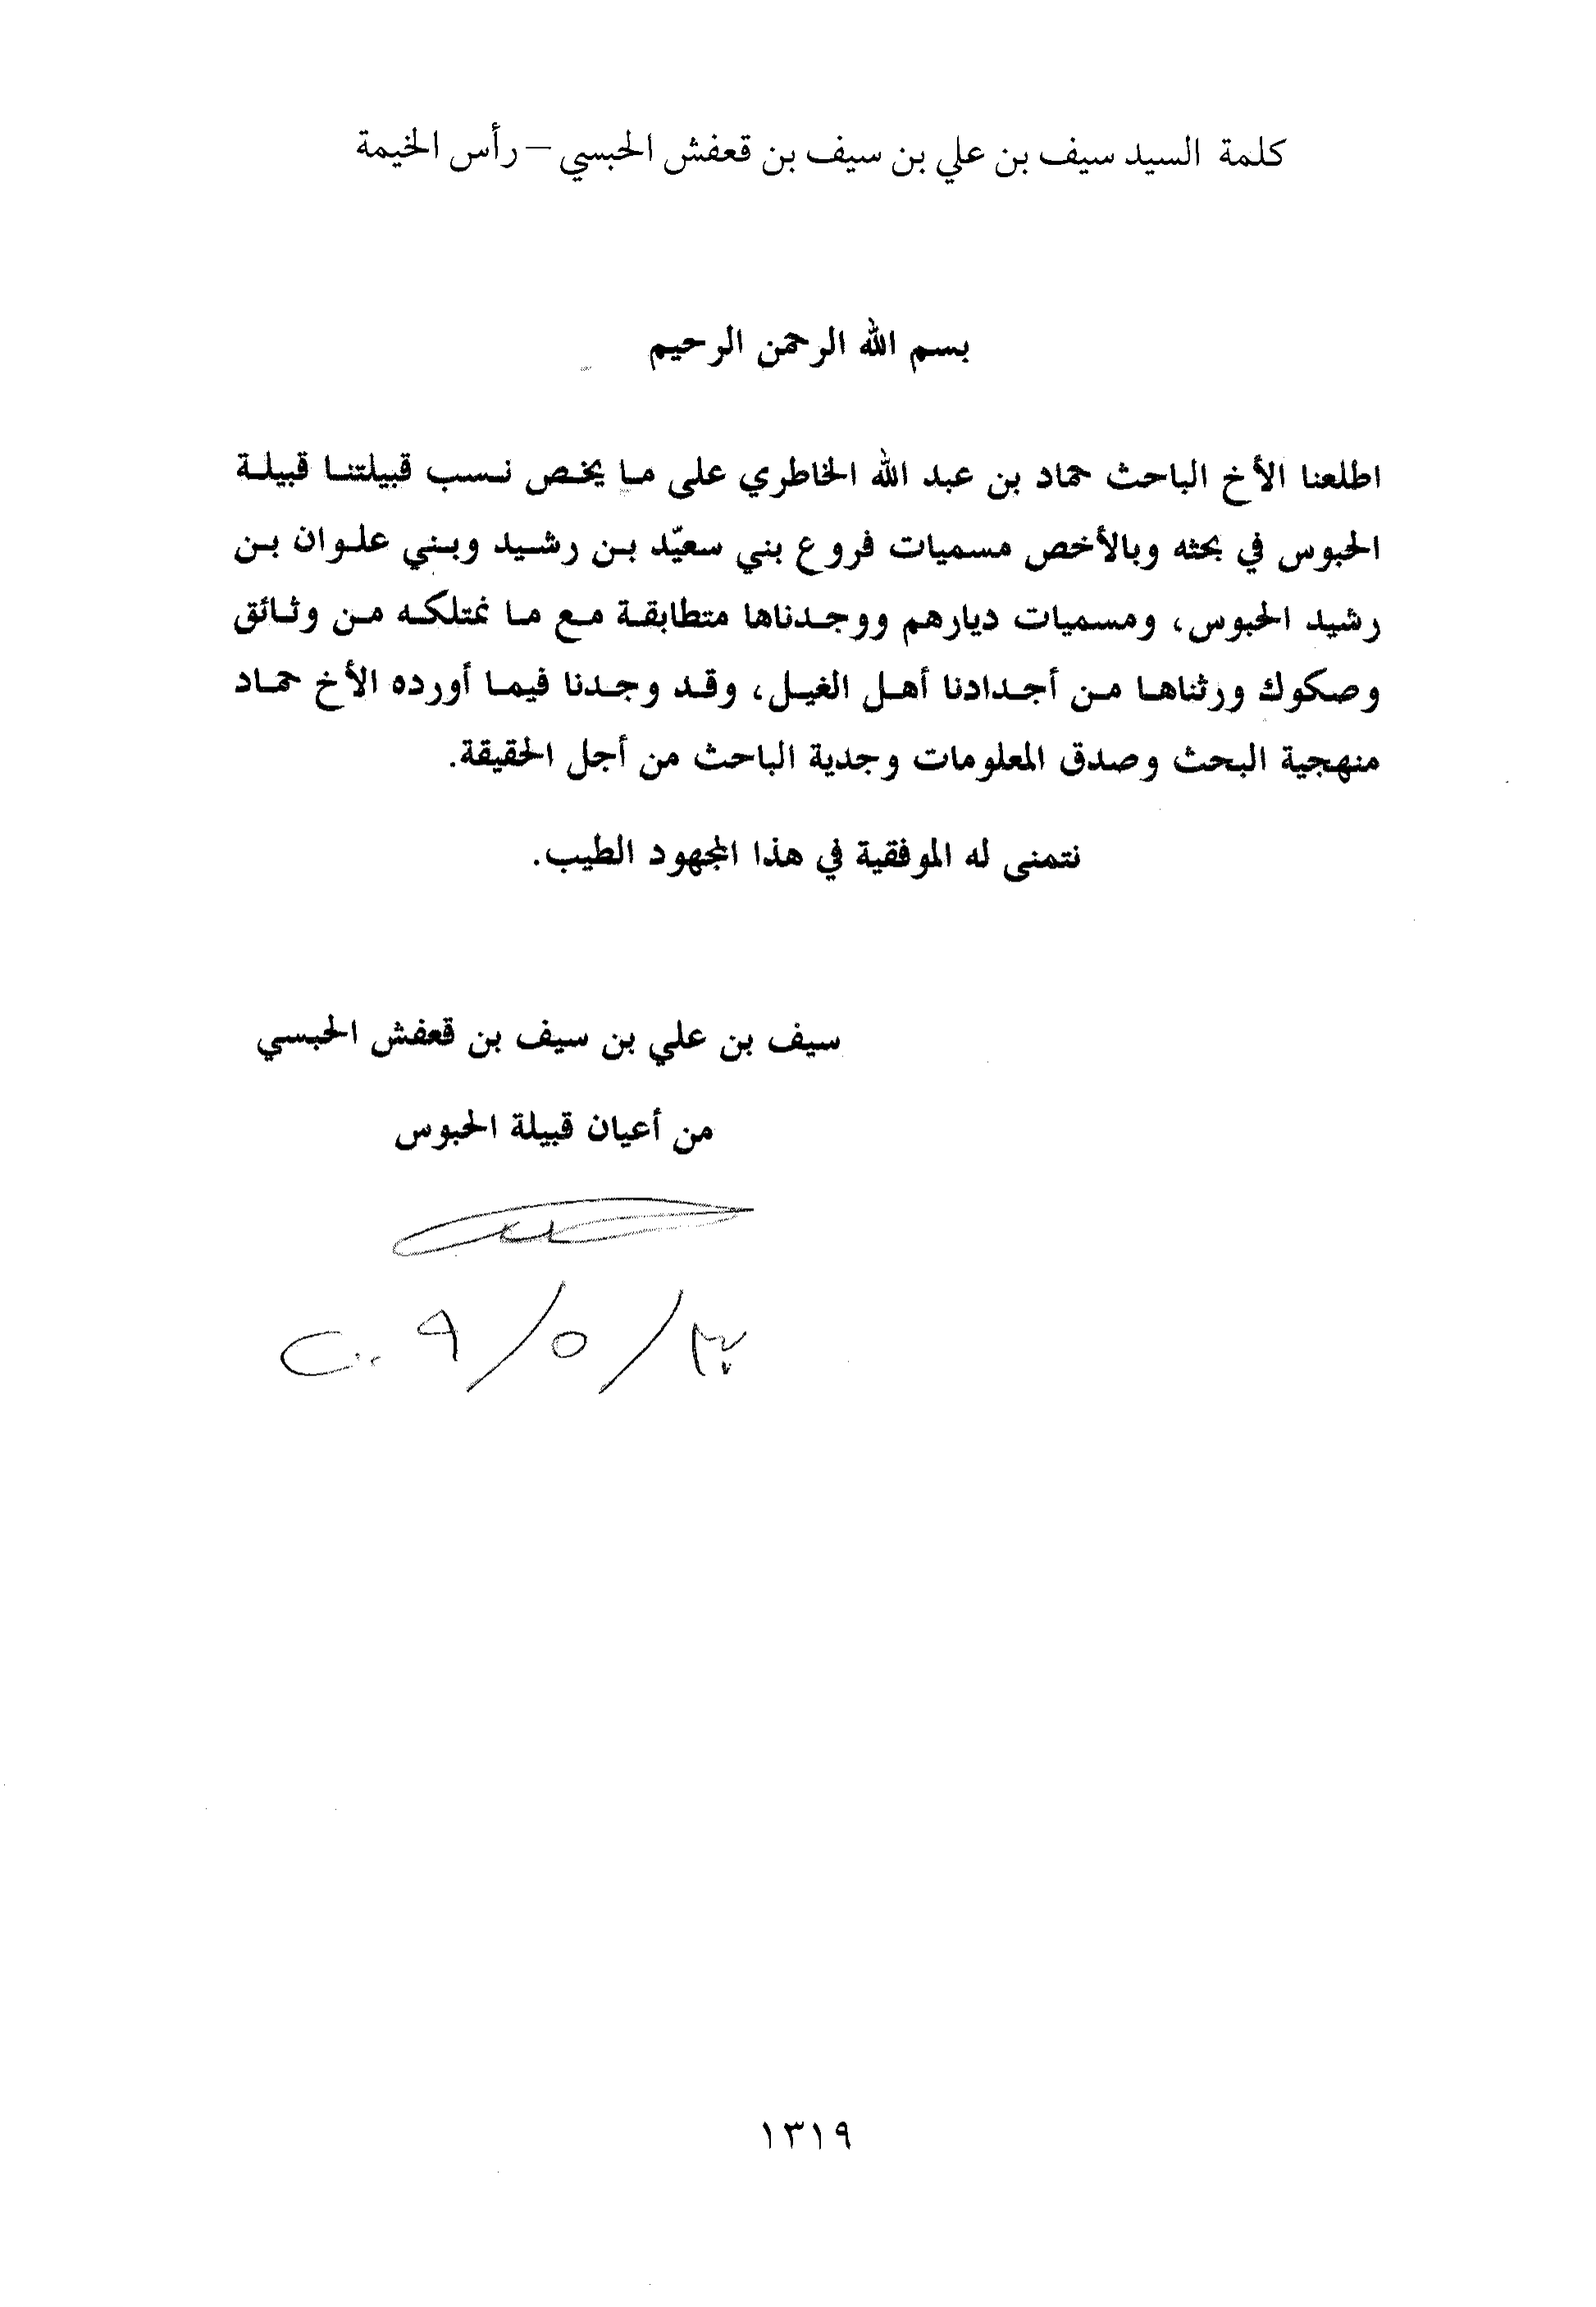 كلمة السيد سيف بن علي بن سيف بن قعفش الحبسي – رأس الخيمة
بسم الله الرحمن الرحيم
اطلعنا الأخ الباحث حماد بن عبد الله الخاطري على ما يخص نسب قبيلتنا قبيلة
الحبوس في بحثه وبالأخص مسميات فروع بني سعيّد بن رشيد وبني علوان بن
رشيد الحبوس، ومسميات ديارهم ووجدناها متطابقة مع ما نمتلكه من وثائق
وصكوك ورثناها من أجدادنا أهل الغيل، وقد وجدنا فيما أورده الأخ حماد
منهجية البحث وصدق المعلومات وجدية الباحث من أجل الحقيقة.
نتمنى له الموفقية في هذا المجهود الطيب.
سيف بن علي بن سيف بن قعفش الحبسي
من أعيان قبيلة الحبوس
١٣١٩